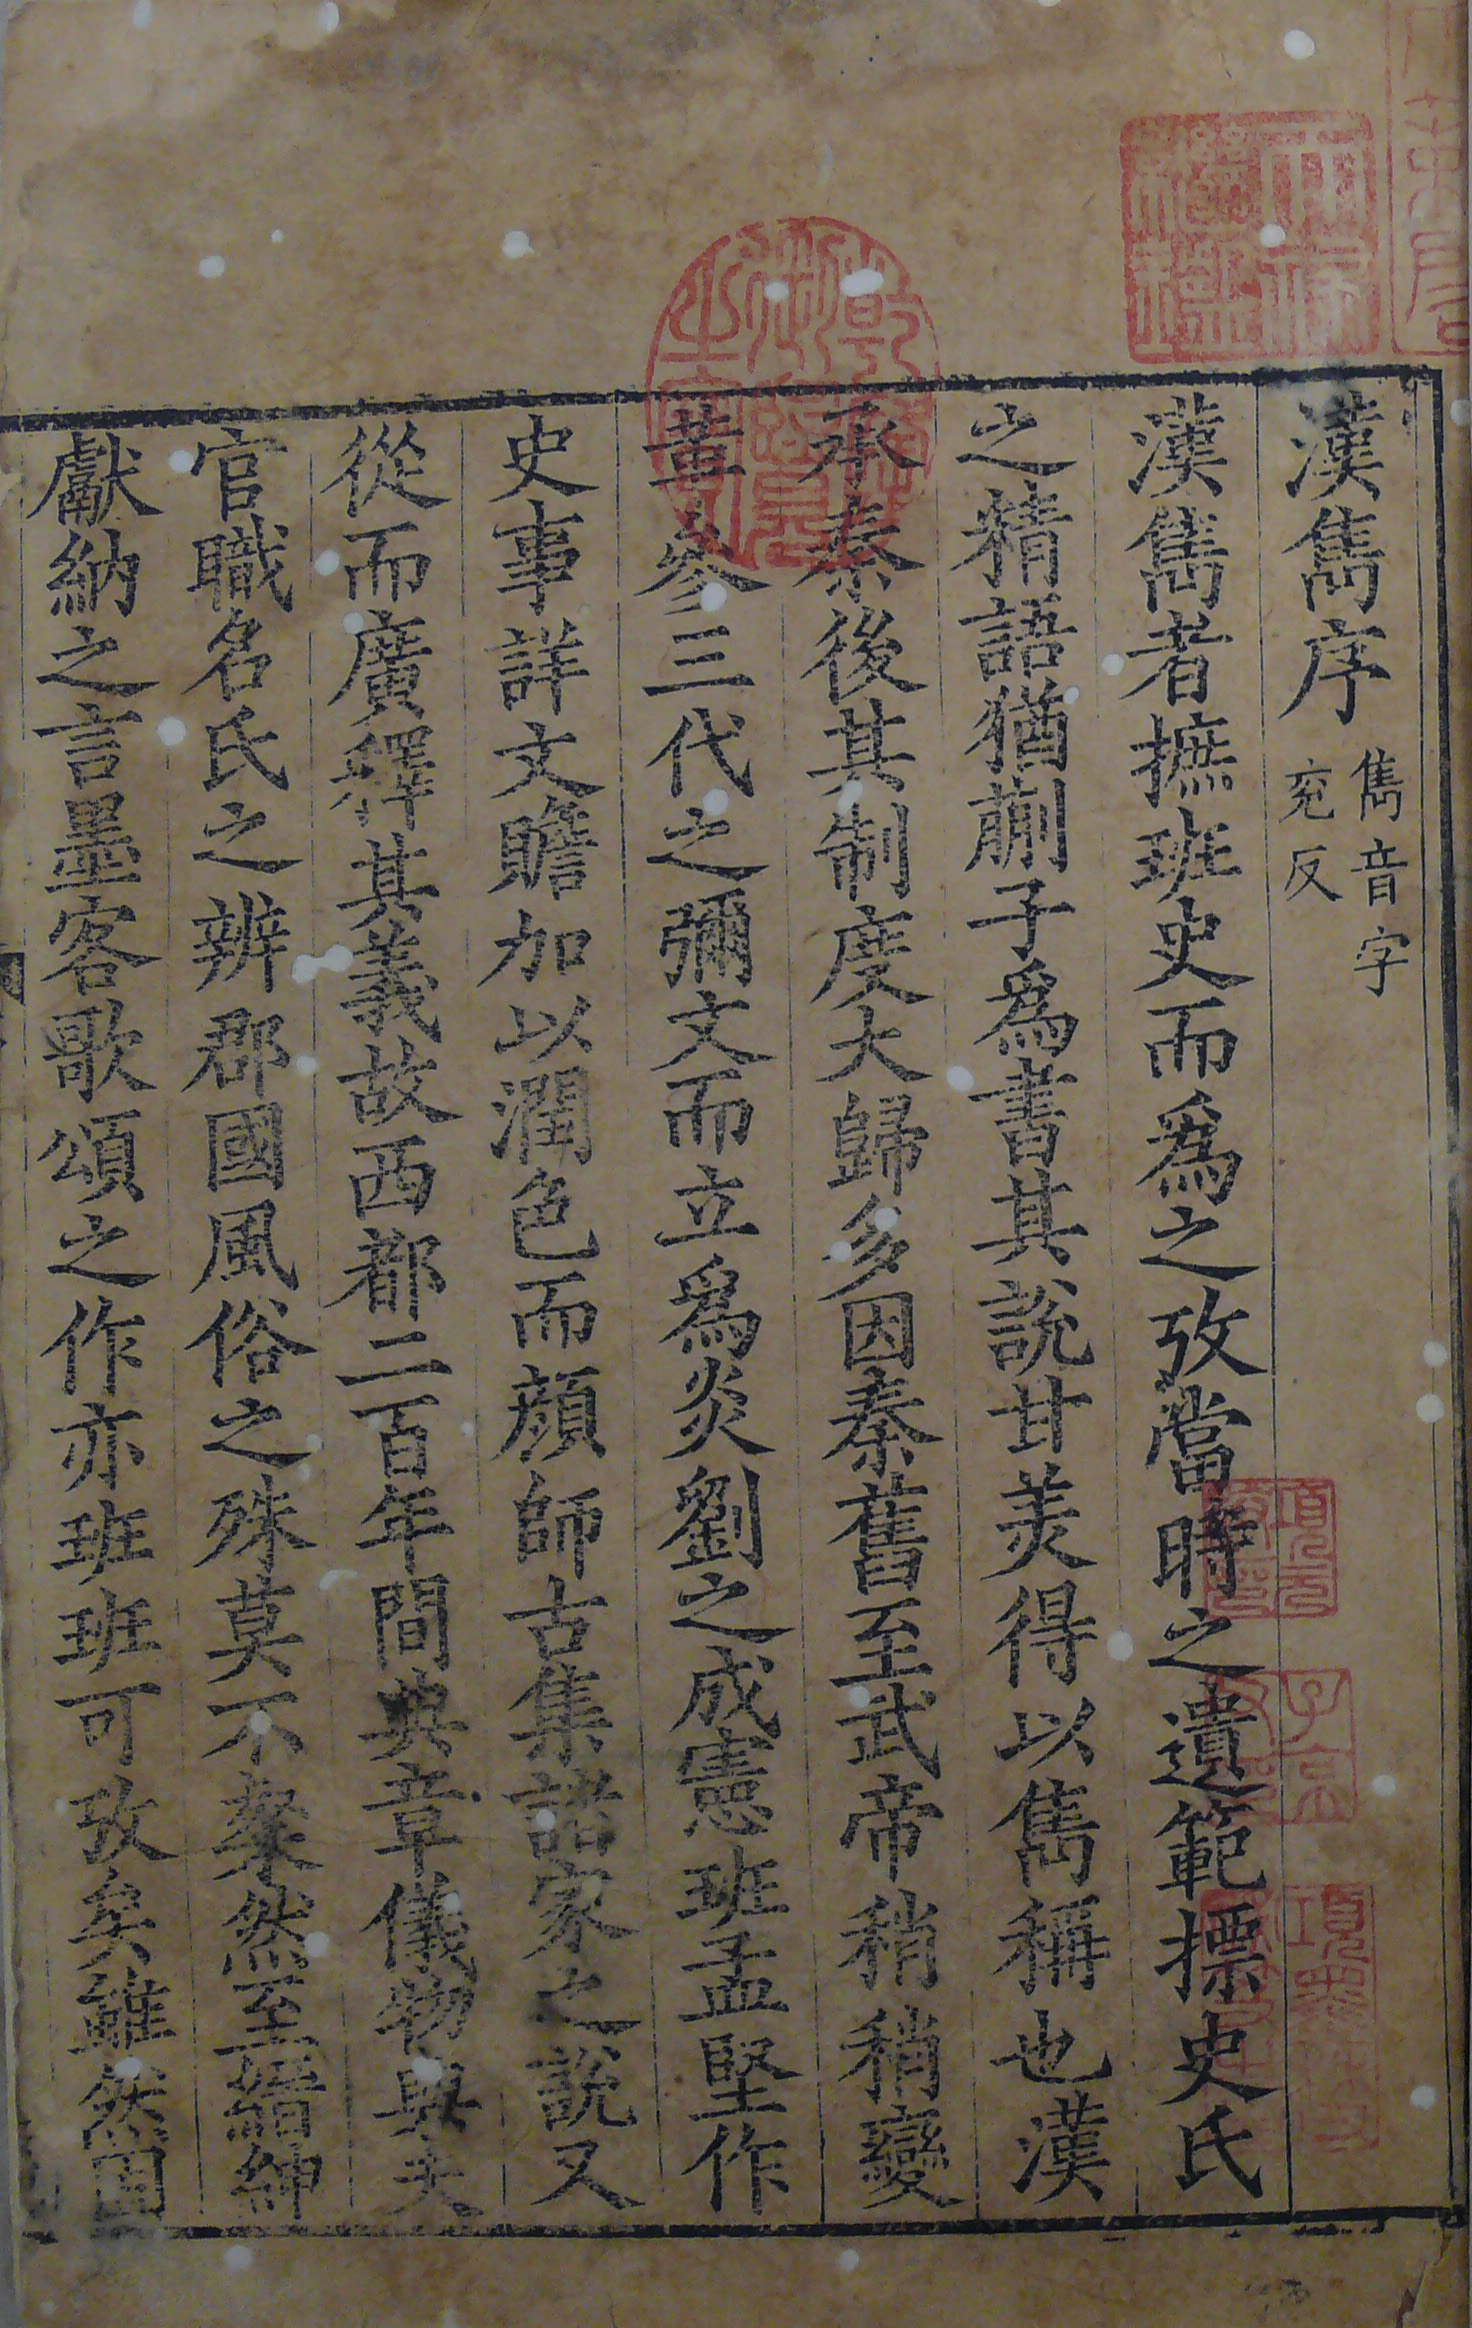 漢雋序
雋音字
兖反
漢雋者摭班史而爲之攷當時之遺範摽史氏
之精語猶蒯子爲書其說甘美得以雋稱也漢
承秦後其制度大歸多因秦舊至武帝稍稍變
革參三代之彌文而立爲炎劉之成憲班孟堅作
史事詳文贍加以潤色而顔師古集諸家之說又
從而廣釋其義故西都二百年間典章儀物與夫
官職名氏之辨郡國風俗之殊莫不粲然至縉紳
獻納之言墨客歌頌之作亦班班可攷矣雖然固
項元
子京